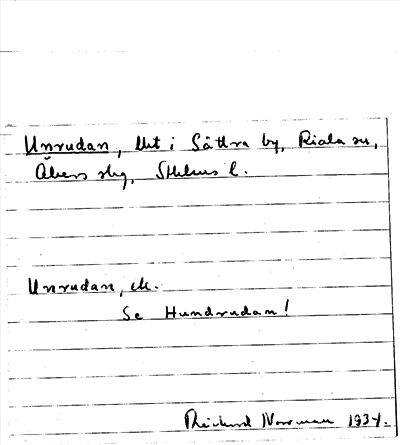 Unrudan, llt i Såttra by, Riala sn,
Åkers slg, Sthlms l.
Unrudan, ck.
Se Hundrudan!
Rickard Norrman 1934.